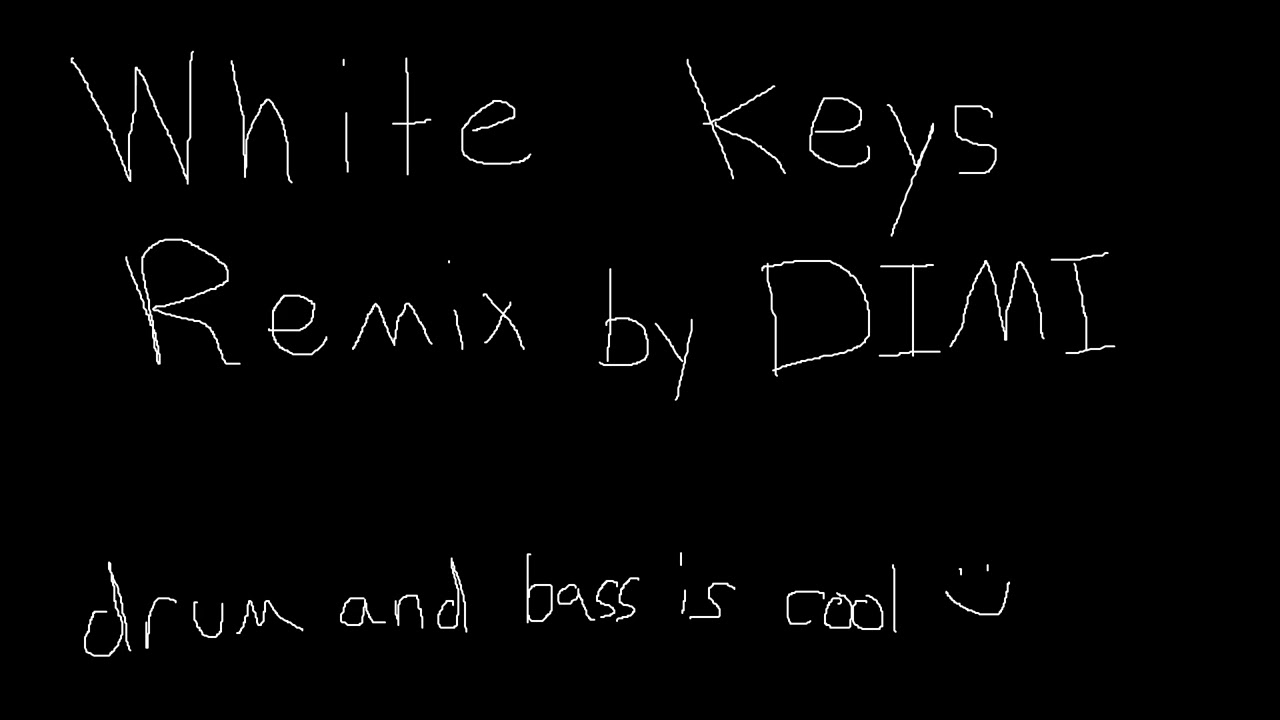 White Keys
Remix by DIMI
drum and bass is cool :)